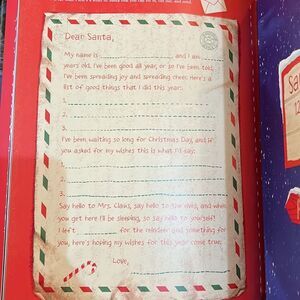 Dear Santa,
My name is , and I am
years old. I've been good all year, or so I've been told;
I've been spreading joy and spreading cheer. Here's a
list of good things that I did this year:
1.
2.
3.
I've been waiting so long for Christmas Day, and if
you asked for my wishes this is what I'd say:
1.
2.
3.
Say hello to Mrs. Claus, say hello to the elves, and when
you get here I'll be sleeping, so say hello to yourself!
I left for the reindeer and something for
you, here's hoping my wishes for this year come true.
Love,
Sa